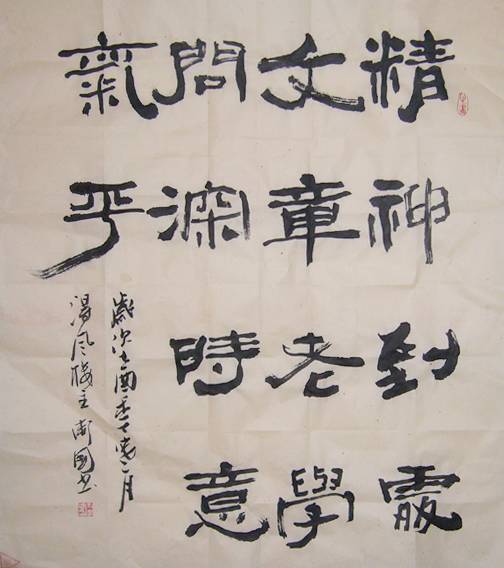 精神到處
文章老學
問深時意
氣平
歲次乙酉 二月
風樓主 周國書